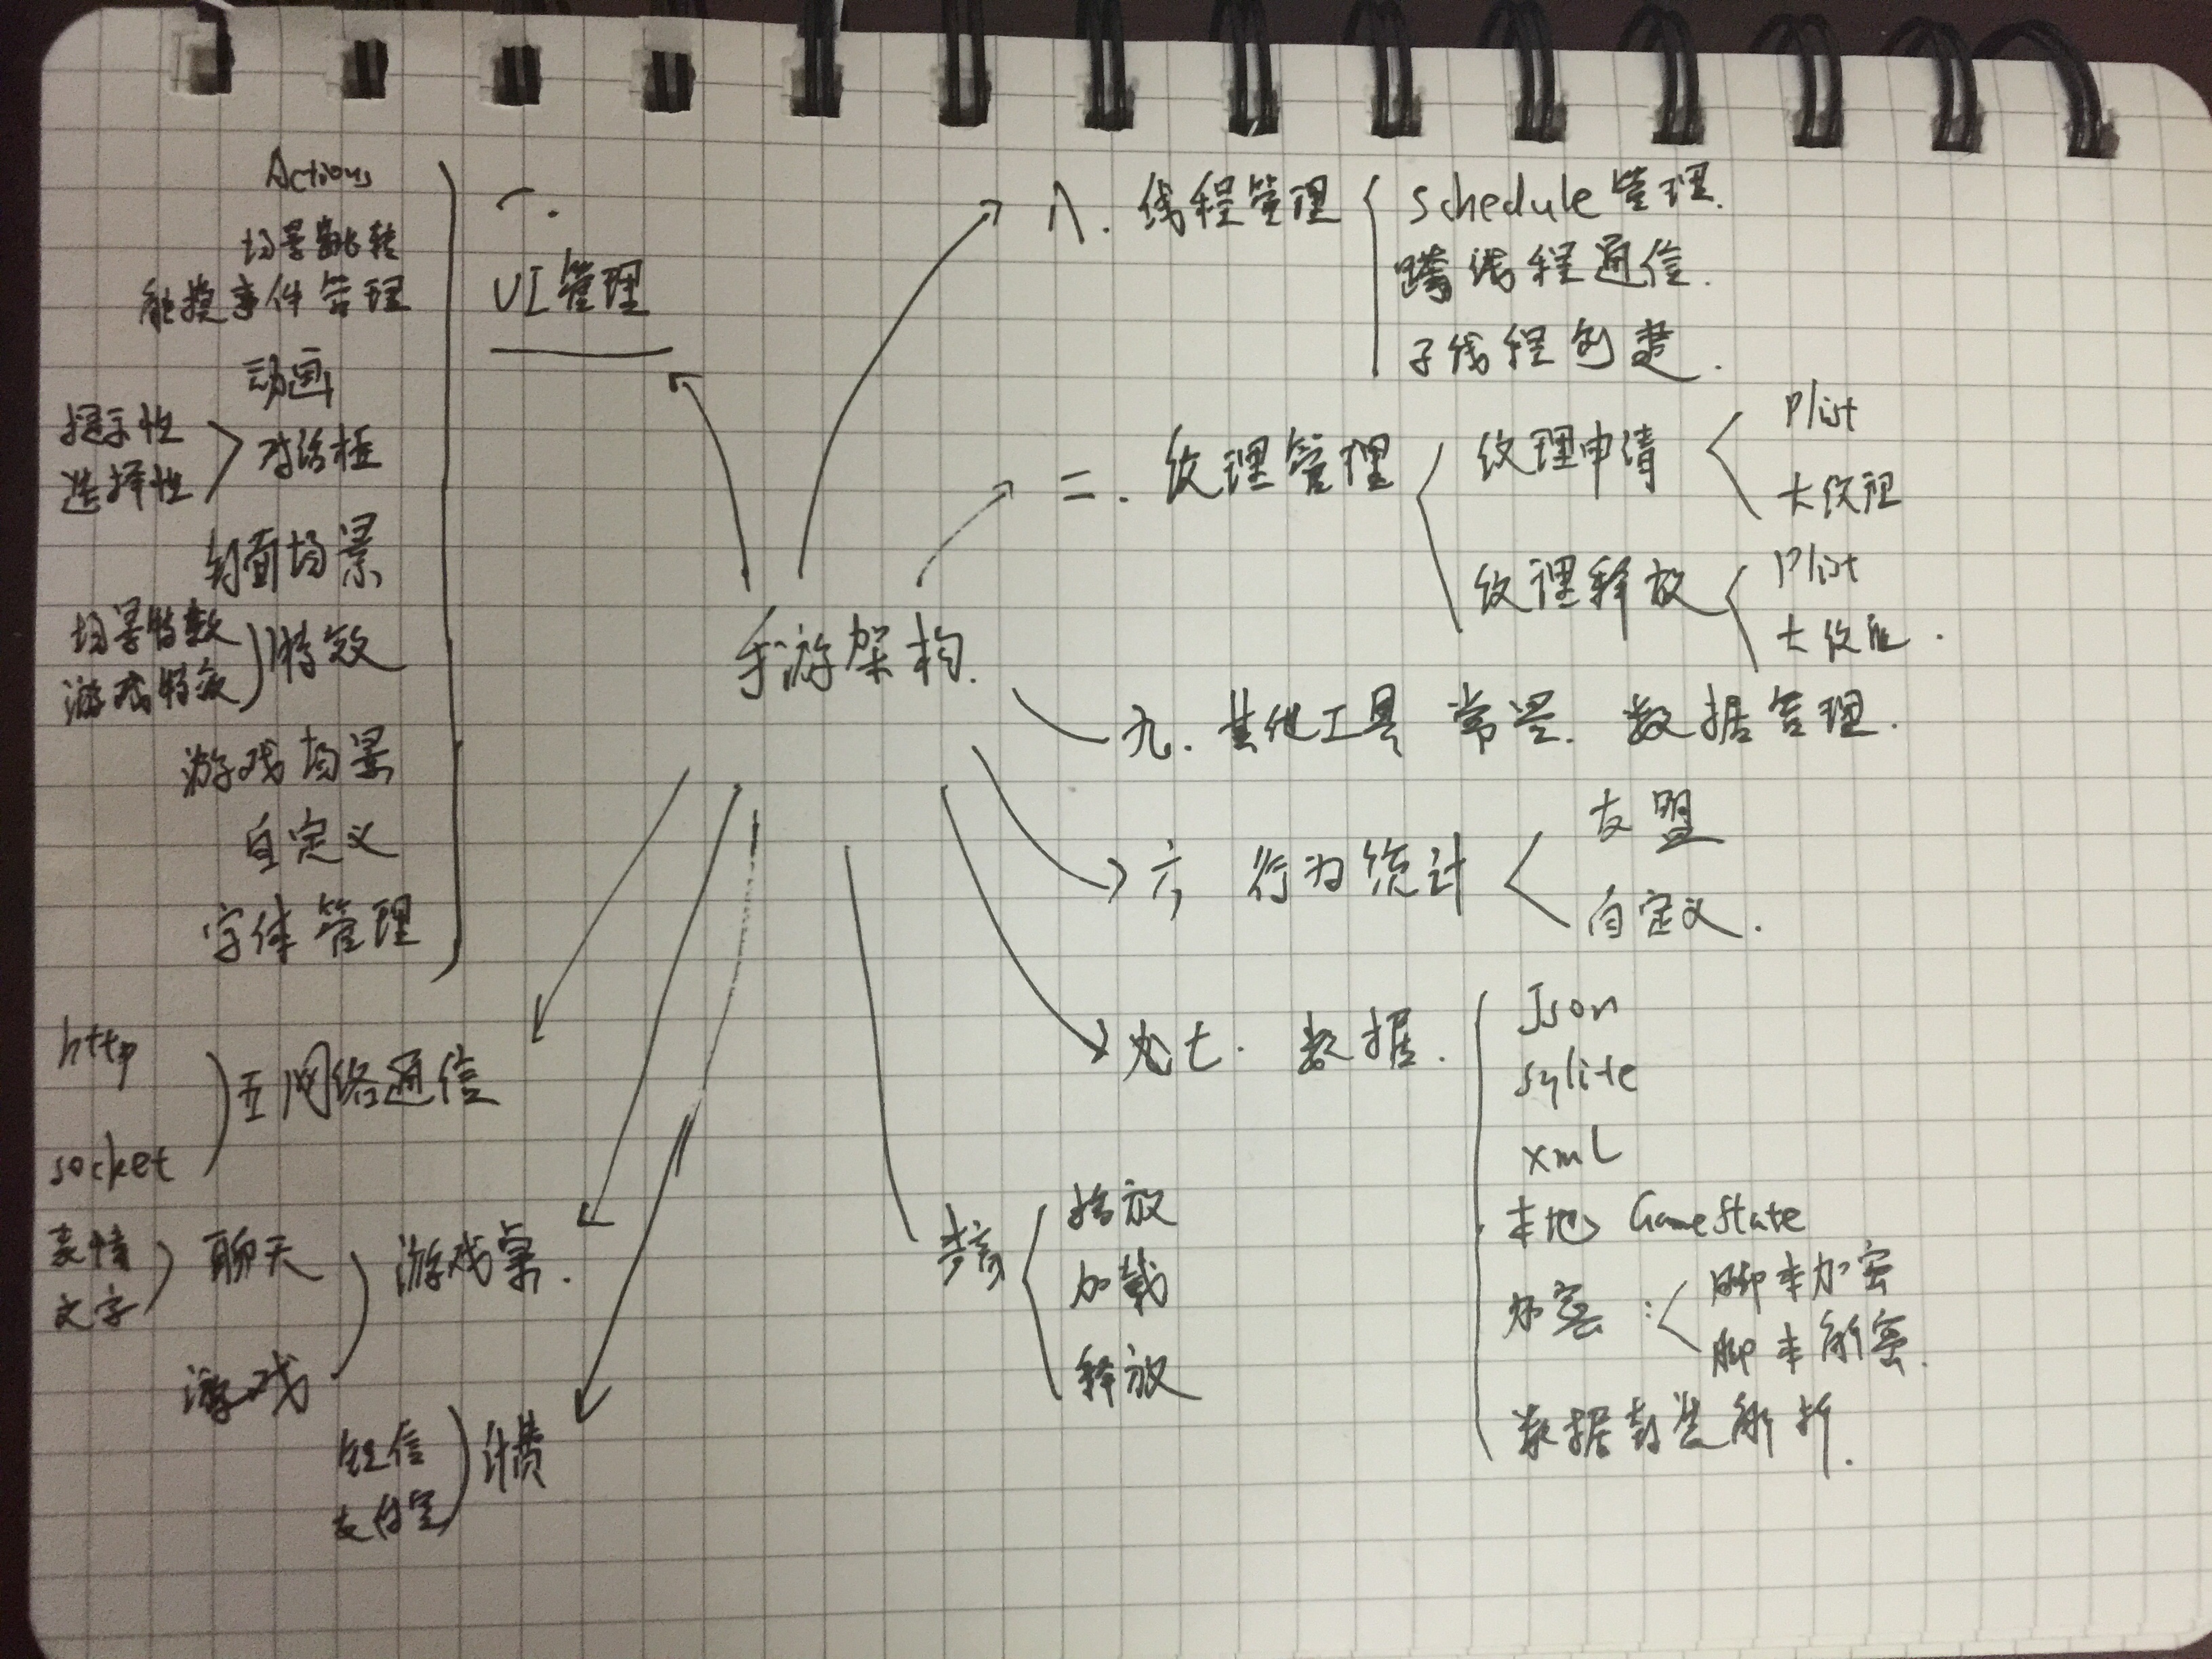 手游架构.
一.
UI管理
Actions
场景跳转
触摸事件管理
动画
提示性
选择性
对话框
封面场景
场景特效
游戏特效
特效
游戏场景
自定义
字体管理
八. 线程管理
schedule管理.
跨线程通信.
子线程创建.
二. 纹理管理
纹理申请
Plist
大纹理
纹理释放
Plist
大纹理.
九. 其他工具 常量. 数据管理.
六 行为统计
友盟
自定义.
七. 数据.
Json
sqlite
xmL
本地 GameState
加密:
脚本加密
脚本解密.
数据封装解析.
声音
播放
加载
释放
五 网络通信
http
socket
游戏桌.
聊天
表情
文字
游戏
计费
短信
支付宝